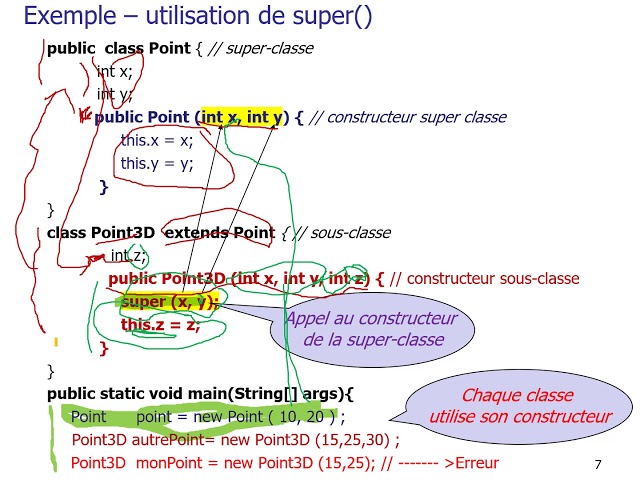 Exemple – utilisation de super()
public class Point { // super-classe
int x;
int y;
public Point (int x, int y) { // constructeur super classe
this.x = x;
this.y = y;
}
}
class Point3D extends Point { // sous-classe
int z;
public Point3D (int x, int y, int z) { // constructeur sous-classe
super (x, y);
this.z = z;
}
}
Appel au constructeur
de la super-classe
public static void main(String[] args){
Point point = new Point ( 10, 20 ) ;
Point3D autrePoint= new Point3D (15,25,30) ;
Point3D monPoint = new Point3D (15,25); // ------- >Erreur
Chaque classe
utilise son constructeur
7